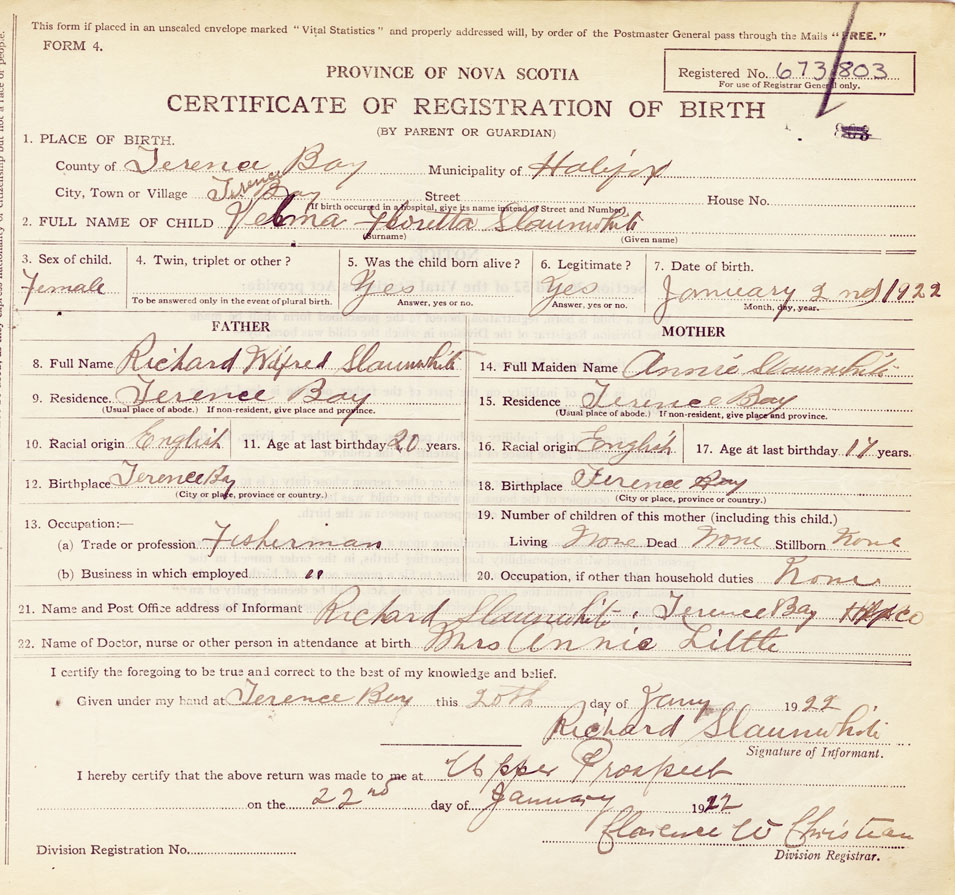 This form if placed in an unsealed envelope marked "Vital Statistics" and properly addressed will, by order of the Postmaster General pass through the Mails "FREE."
FORM 4.
PROVINCE OF NOVA SCOTIA
Registered No. 673803
For use of Registrar General only.
CERTIFICATE OF REGISTRATION OF BIRTH
(BY PARENT OR GUARDIAN)
1. PLACE OF BIRTH.
County of Terence Bay Municipality of Halifax
City, Town or Village Terence Bay Street House No.
(If birth occured in a hospital, give its name instead of Street and Number)
2. FULL NAME OF CHILD Velma Floretta Slaunwhite
(Surname) (Given name)
3. Sex of child. 4. Twin, triplet or other? 5. Was the child born alive? 6. Legitimate? 7. Date of birth.
Female Yes Yes January 2nd 1922
To be answered only in the event of plural birth. Answer, yes or no. Answer, yes or no. Month, day, year.
FATHER MOTHER
8. Full Name Richard Wilfred Slaunwhite 14. Full Maiden Name Annie Slaunwhite
9. Residence. Terence Bay 15. Residence Terence Bay
(Usual place of abode.) If non-resident, give place and province. (Usual place of abode.) If non-resident, give place and province.
10. Racial origin English 11. Age at last birthday 20 years. 16. Racial origin English 17. Age at last birthday 17 years.
12. Birthplace Terence Bay 18. Birthplace Terence Bay
(City or place, province or country.) (City or place, province or country.)
13. Occupation:— 19. Number of children of this mother (including this child.)
(a) Trade or profession Fisherman Living None Dead None Stillborn None
(b) Business in which employed " 20. Occupation, if other than household duties None
21. Name and Post Office address of Informant Richard Slaunwhite, Terence Bay Hfx Co
22. Name of Doctor, nurse or other person in attendance at birth Mrs Annie Little
I certify the foregoing to be true and correct to the best of my knowledge and belief.
Given under my hand at Terence Bay this 20th day of Jany 1922
Richard Slaunwhite
Signature of Informant.
I hereby certify that the above return was made to me at Upper Prospect
on the 22nd day of January 1922
Florence W Christian
Division Registration No. Division Registrar.